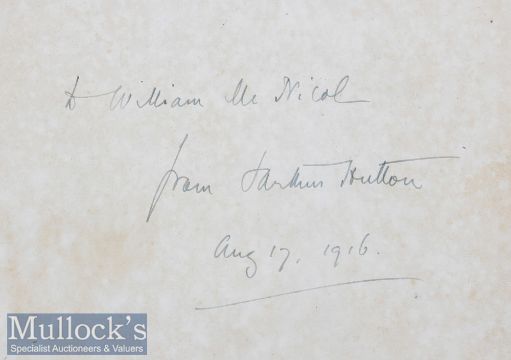 to William McNicol
from J. Arthur Hutton
Aug 17, 1916.
Mullock's
Specialist Auctioneers & Valuers